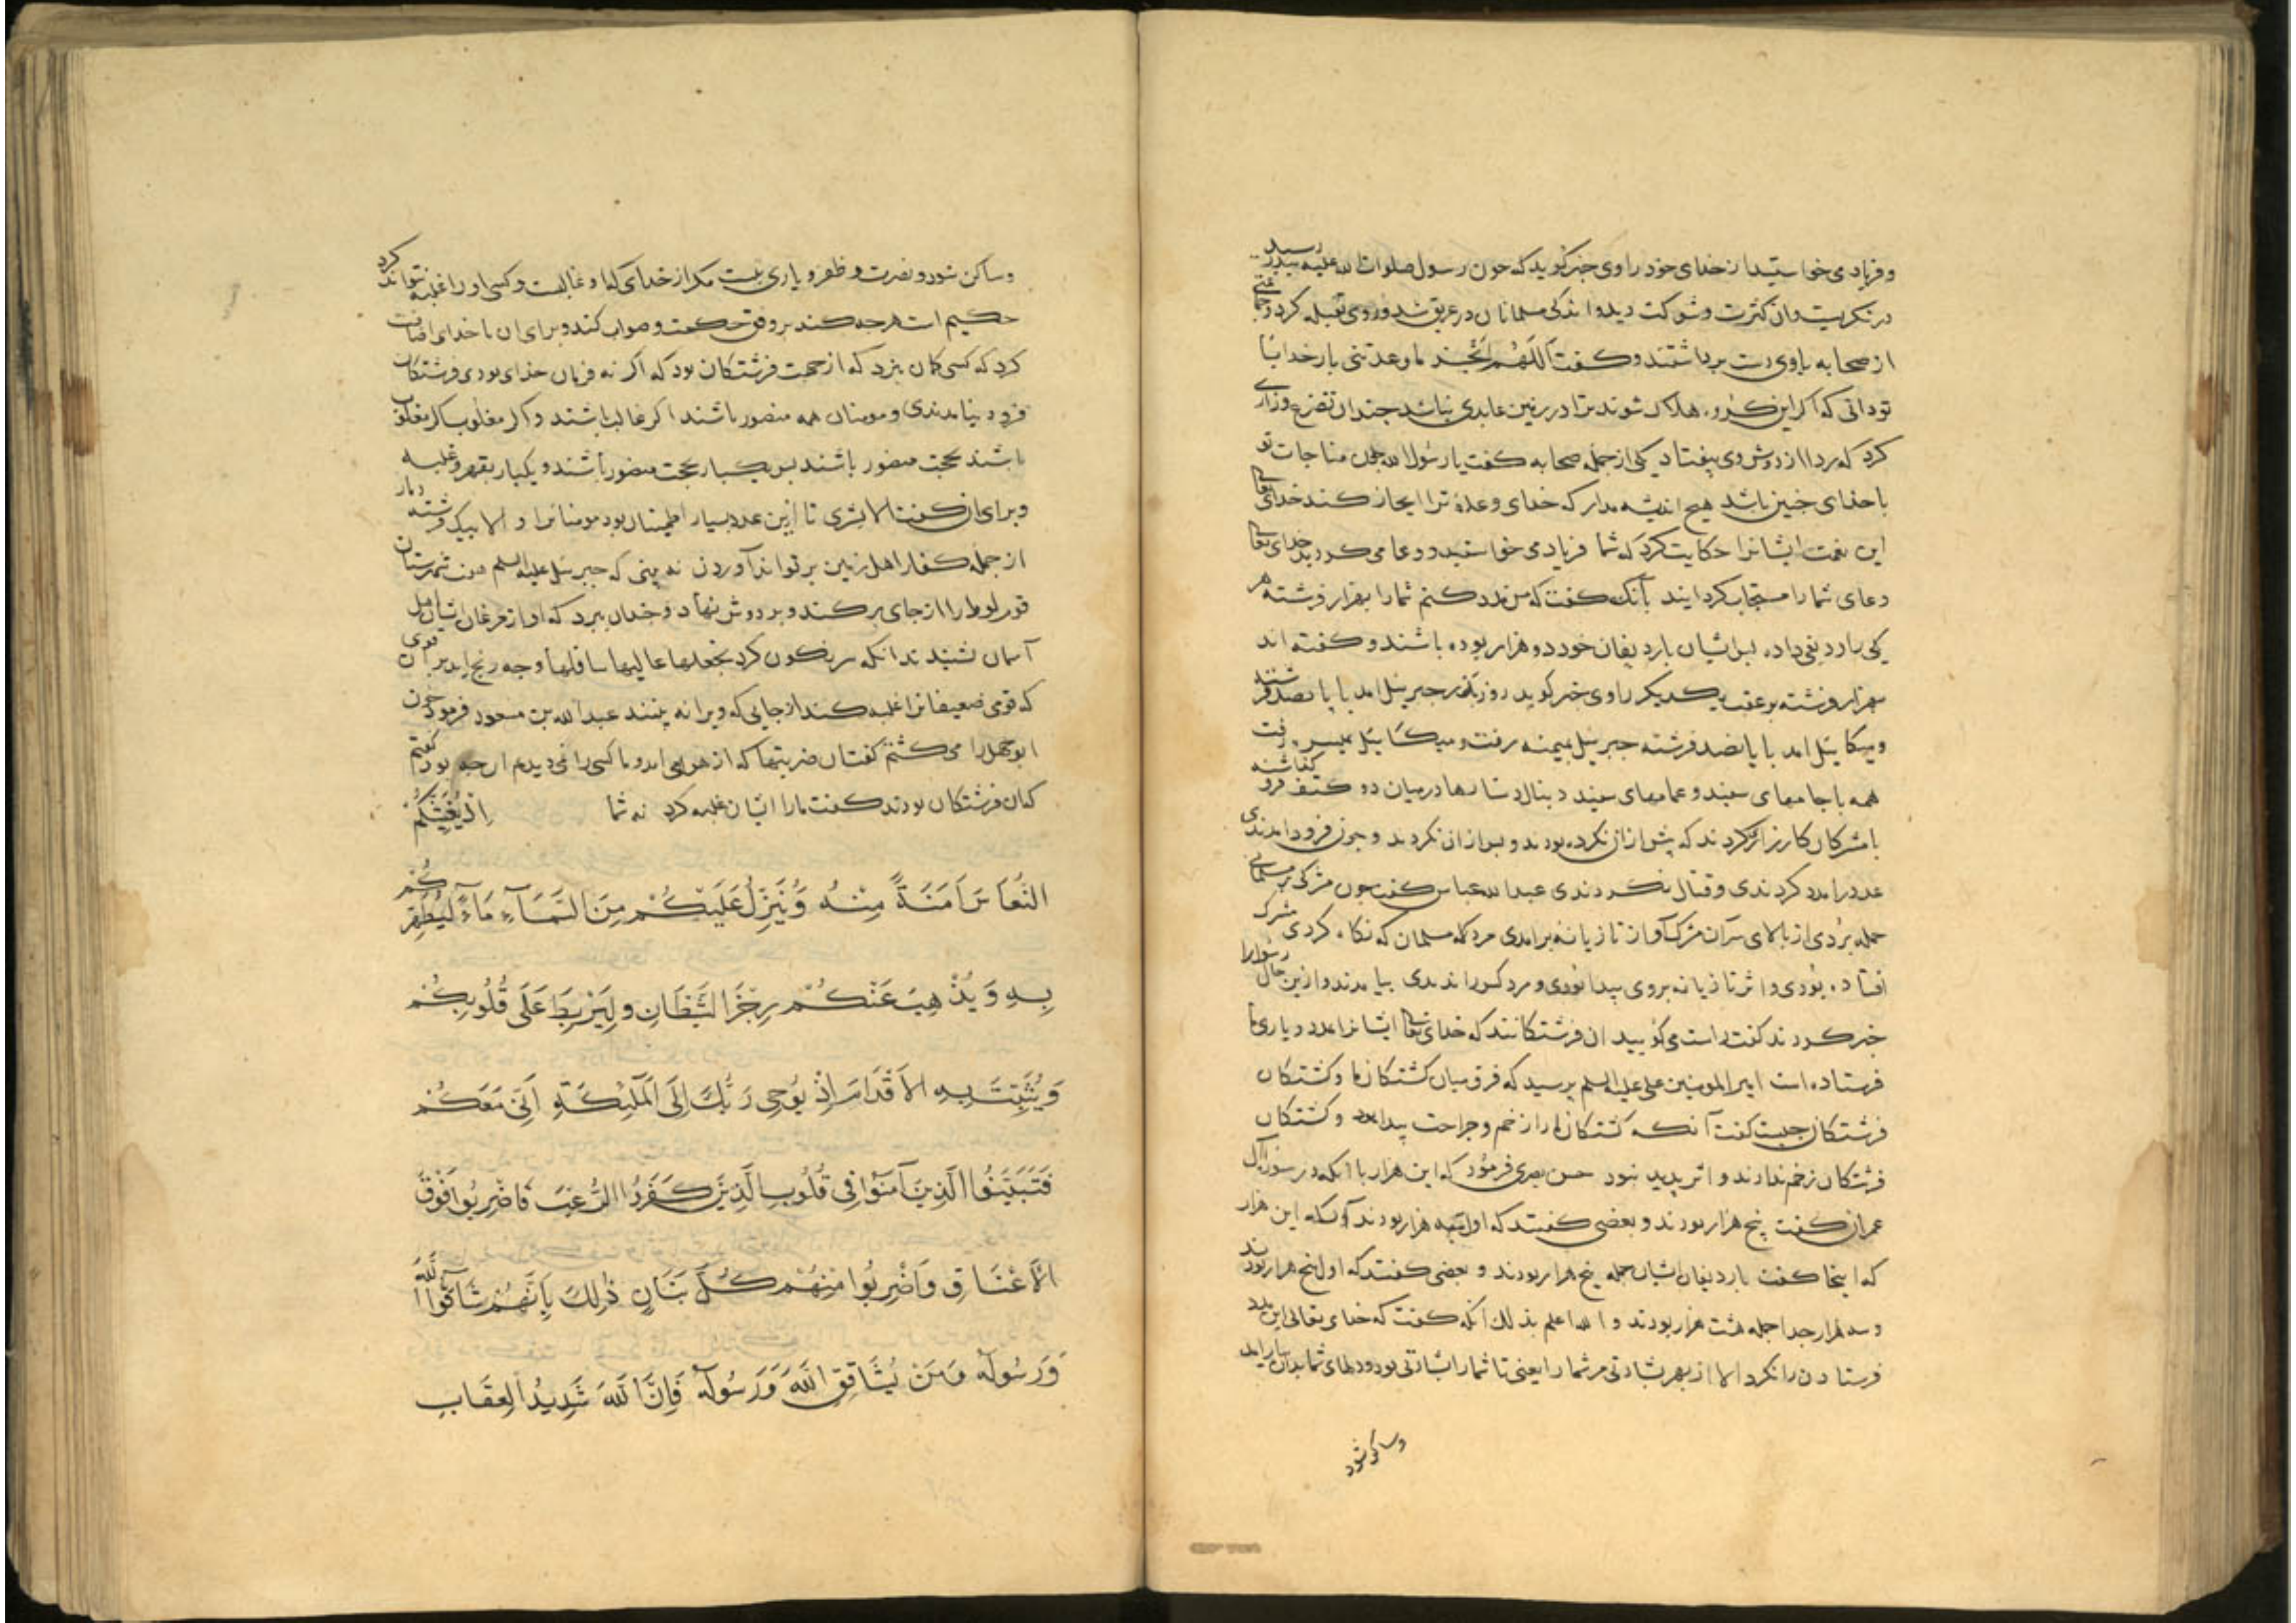 و فریاد می خواستید از خدای خود راوی خبر کوید که چون رسول صلوات الله علیه ببدر رسید
در نکریست و ان کثرت و شوکت دید و اندکی مسلمانان در عریش شد و روی بقبله کرد و جماعتی
از صحابه با وی دست برداشتند و کفت اللهم انجز لی ما وعدتنی بار خدایا
تو دانی که اکر این کروه هلاک شوند ترا در زمین عابدی نباشد چندان تضرع و زاری
کرد که ردا از دوش وی بیفتاد یکی از جمله صحابه کفت یا رسول الله چون مناجات تو
با خدای چنین باشد هیچ اندیشه مدار که خدای وعده ترا ایجاز کند خدای تعالی
این نعمت ایشانرا حکایت کرد که شما فریاد می خواستید و دعا می کردید خدای تعالی
دعای شما را مستجاب کردانید بآنک کفت که من مدد کنم شما را بهزار فرشته هر
یکی را ردیفی داده پس ایشان با ردیفان خود دو هزار بوده باشند و کفته اند
سهزار فرشته بر عقب یکدیکر راوی خبر کوید روز بدر جبرئیل امد با پانصد فرشته
و میکائیل امد با پانصد فرشته جبرئیل بمیمنه رفت و میکائیل بمیسره رفت
همه با جامهای سپید و عمامهای سپید دنبال دستارها درمیان دو کتف فرو کذاشته
با مشرکان کارزار کردند که پیش از ان نکرده بودند و پس از ان نکردند و چون فرود امدندی
عدد را مدد کردندی و قتال نکردندی عبد الله عباس کفت چون مشرکی بر مسلمانی
حمله بردی از بالای سر آن مشرک آواز تازیانه برامدی مرد مسلمان که نکاه کردی مشرک
افتاده بودی و اثر تازیانه بر وی پیدا بودی و مرد کس را ندیدی بیامدند و ازین حال رسول را
خبر کردند کفت راست می کویید ان فرشتکانند که خدای تعالی ایشانرا بمدد و یاری ما
فرستاده است امیر المومنین علی علیه السلم پرسید که فرق میان کشتکان ما و کشتکان
فرشتکان چیست کفت آنکه کشتکان ما را زخم و جراحت پیدا بود و کشتکان
فرشتکان زخم ندارند و اثر پدید نبود حسن بصری فرمود که این هزار با انکه در سورة ال
عمران کفت پنج هزار بودند و بعضی کفتند که اول سه هزار بودند و انکه این هزار
که اینجا کفت با ردیفان ایشان جمله پنج هزار بودند و بعضی کفتند که اول پنج هزار بودند
و سه هزار جدا جمله هشت هزار بودند و الله اعلم بذلک انکه کفت که خدای تعالی این مدد
فرستادن را نکرد الا از بهر بشارتی مر شما را یعنی تا شما را بشارتی بود و دلهای شما بدان بیارامد
و ساکن شود
و ساکن شود و نصرت و ظفر و یاری نیست مکر از خدای که او غالبست و کسی او را غلبه نتواند کرد
حکیم است هرچه کند بر وفق حکمت و صواب کند و برای ان با خدای اضافت
کرد که کسی کمان نبرد که از جهت فرشتکان بود که اکر نه فرمان خدای بودی فرشتکان
فرود نیامدندی و مومنان همه منصور باشند اکر غالب باشند و اکر مغلوب اکر مغلوب
باشند بحجت منصور باشند پس یکبار بحجت منصور باشند و یکبار بقهر و غلبه
و برای ان کفت الا بشری تا ازین عدد بسیار اطمینان بود مومنانرا و الا بیک فرشته دمار
از جمله کفار اهل زمین بر تواند آوردن نه بینی که جبرئیل علیه السلم هفت شهرستان
قوم لوط را از جای برکند و بر دوش نهاد و چندان ببرد که اواز مرغان ایشان اهل
آسمان شنیدند انکه سرنکون کرد بجعلها عالیها سافلها و چه رنج اید بر آن قومی
که قومی ضعیفانرا غلبه کند از جایی که ویرا نه بینند عبد الله بن مسعود فرمود چون
ابو جهل را می کشتم کفت ان ضربتها که از هوا می امد و ما کسی را نمی دیدیم از چه بود کفتم
کمان فرشتکان بودند کفت ما را ایشان غلبه کرد نه شما اِذْ يُغَشِّيكُمُ
النُّعَاسَ اَمَنَةً مِنْهُ وَيُنَزِّلُ عَلَيْكُمْ مِنَ السَّمَآءِ مَآءً لِيُطَهِّرَكُمْ
بِهِ وَيُذْهِبَ عَنْكُمْ رِجْزَ الشَّيْطَانِ وَلِيَرْبِطَ عَلَى قُلُوبِكُمْ
وَيُثَبِّتَ بِهِ الاَقْدَامَ اِذْ يُوحِى رَبُّكَ اِلَى الْمَلٰئِكَةِ اَنِّى مَعَكُمْ
فَثَبِّتُوا الَّذِينَ آمَنُوا فِى قُلُوبِ الَّذِينَ كَفَرُوا الرُّعْبَ فَاضْرِبُوا فَوْقَ
الاَعْنَاقِ وَاضْرِبُوا مِنْهُمْ كُلَّ بَنَانٍ ذٰلِكَ بِاَنَّهُمْ شَآقُّوا اللّٰهَ
وَرَسُولَهُ وَمَنْ يُشَاقِقِ اللّٰهَ وَرَسُولَهُ فَاِنَّ اللّٰهَ شَدِيدُ الْعِقَابِ